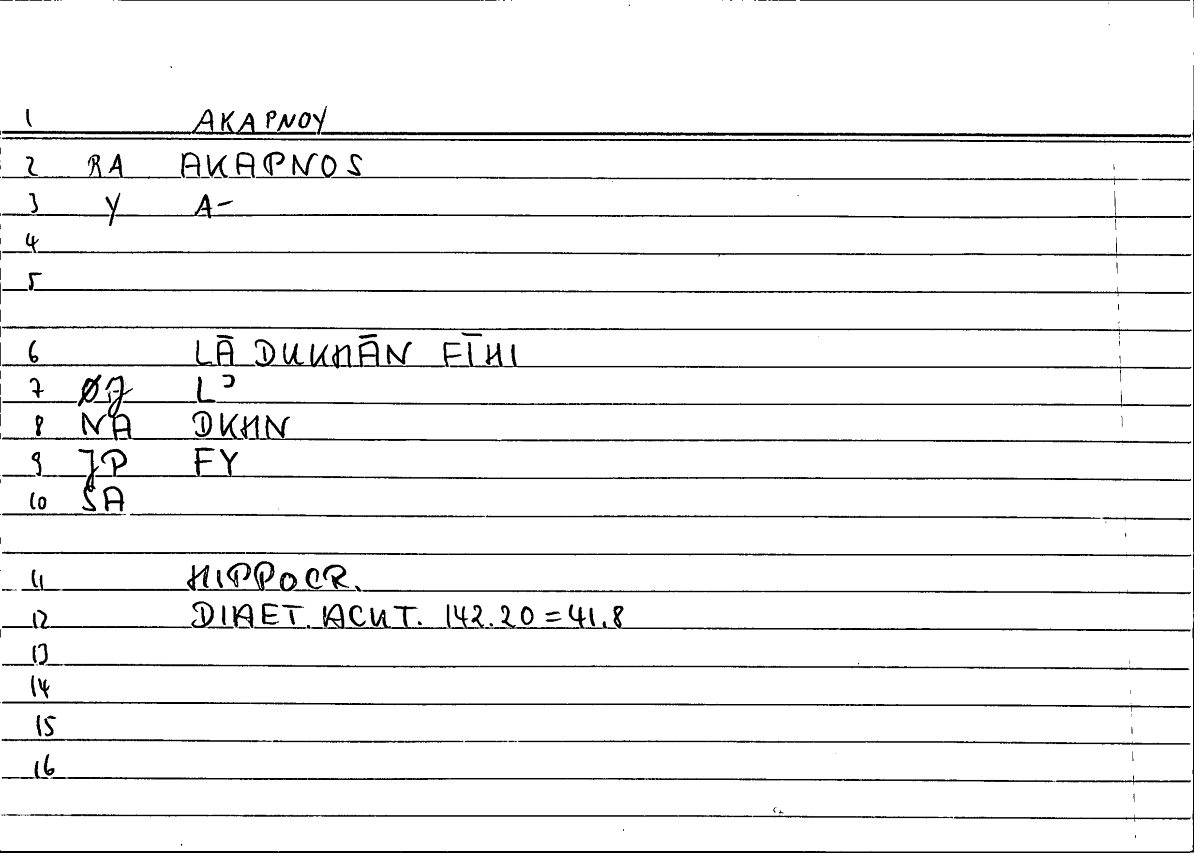 1 AKAPNOY
2 RA AKAPNOS
3 Y A-
4
5
6 LĀ DUKHĀN FĪHI
7 ØJ Lʾ
8 NA DKHN
9 JP FY
10 SA
11 HIPPOCR.
12 DIAET. ACUT. 142.20 = 41.8
13
14
15
16